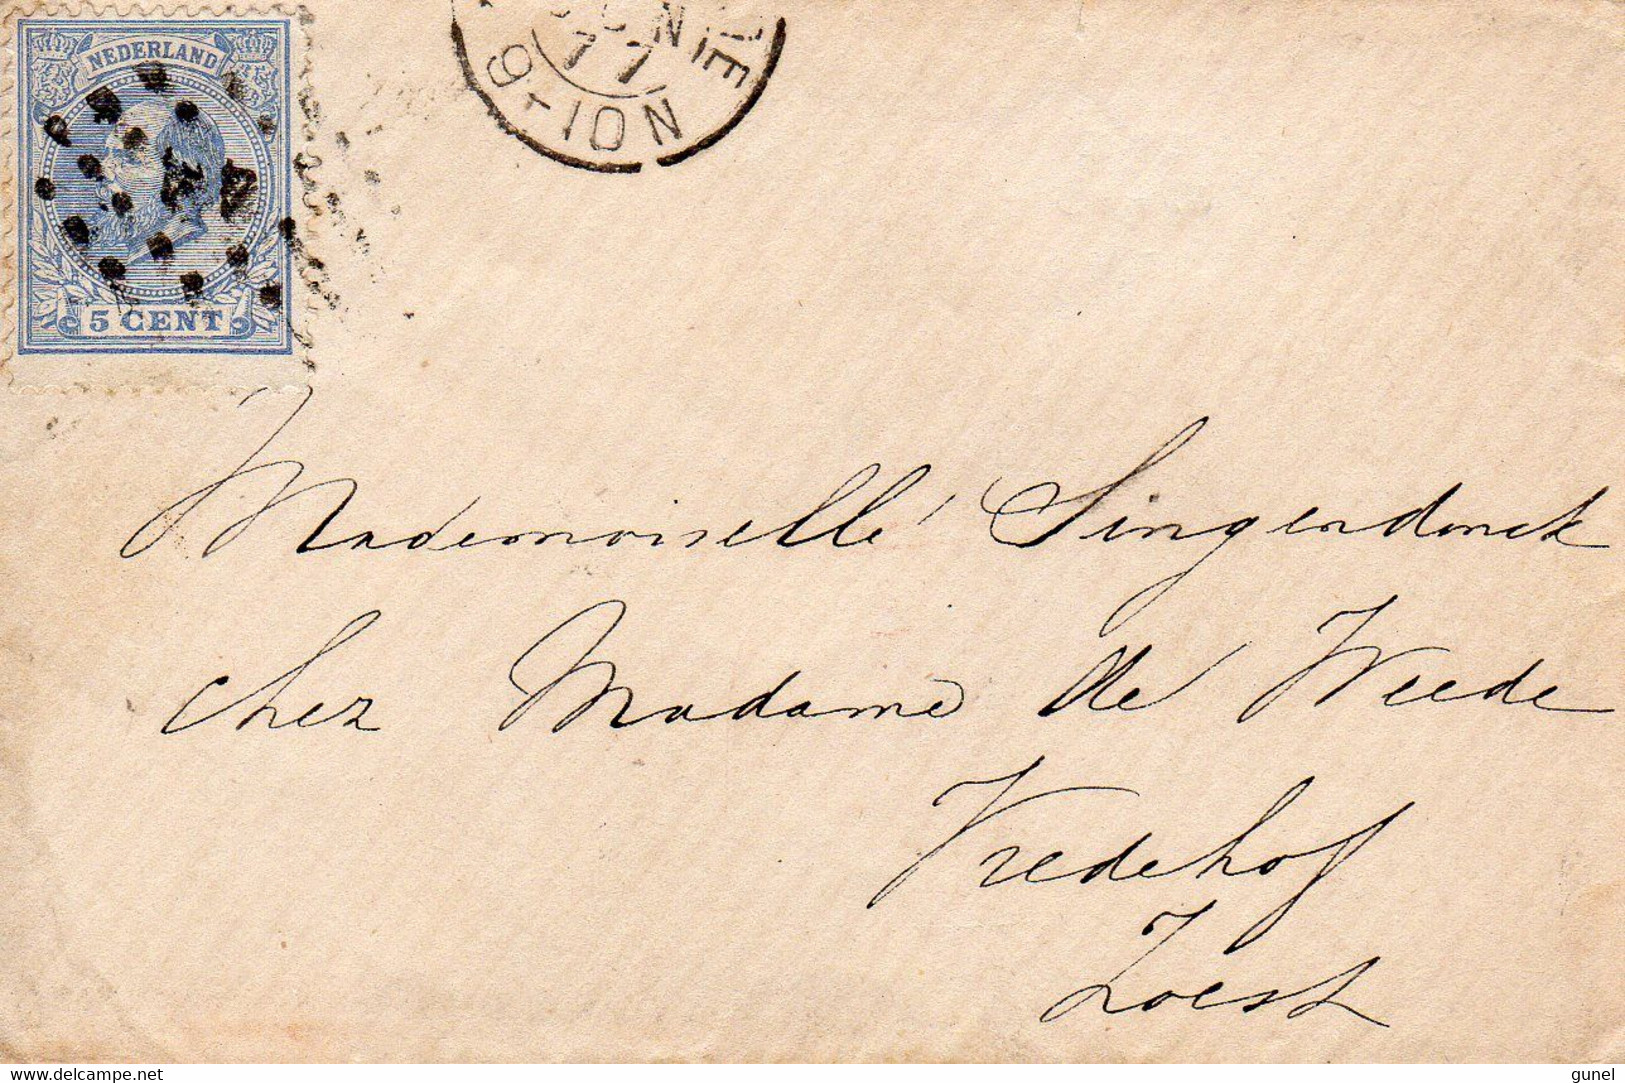 NEDERLAND
5 CENT
77
9-10N
Mademoiselle Singendonck
chez Madame de Weede
Vredehof
Zoest
www.delcampe.net
gunel